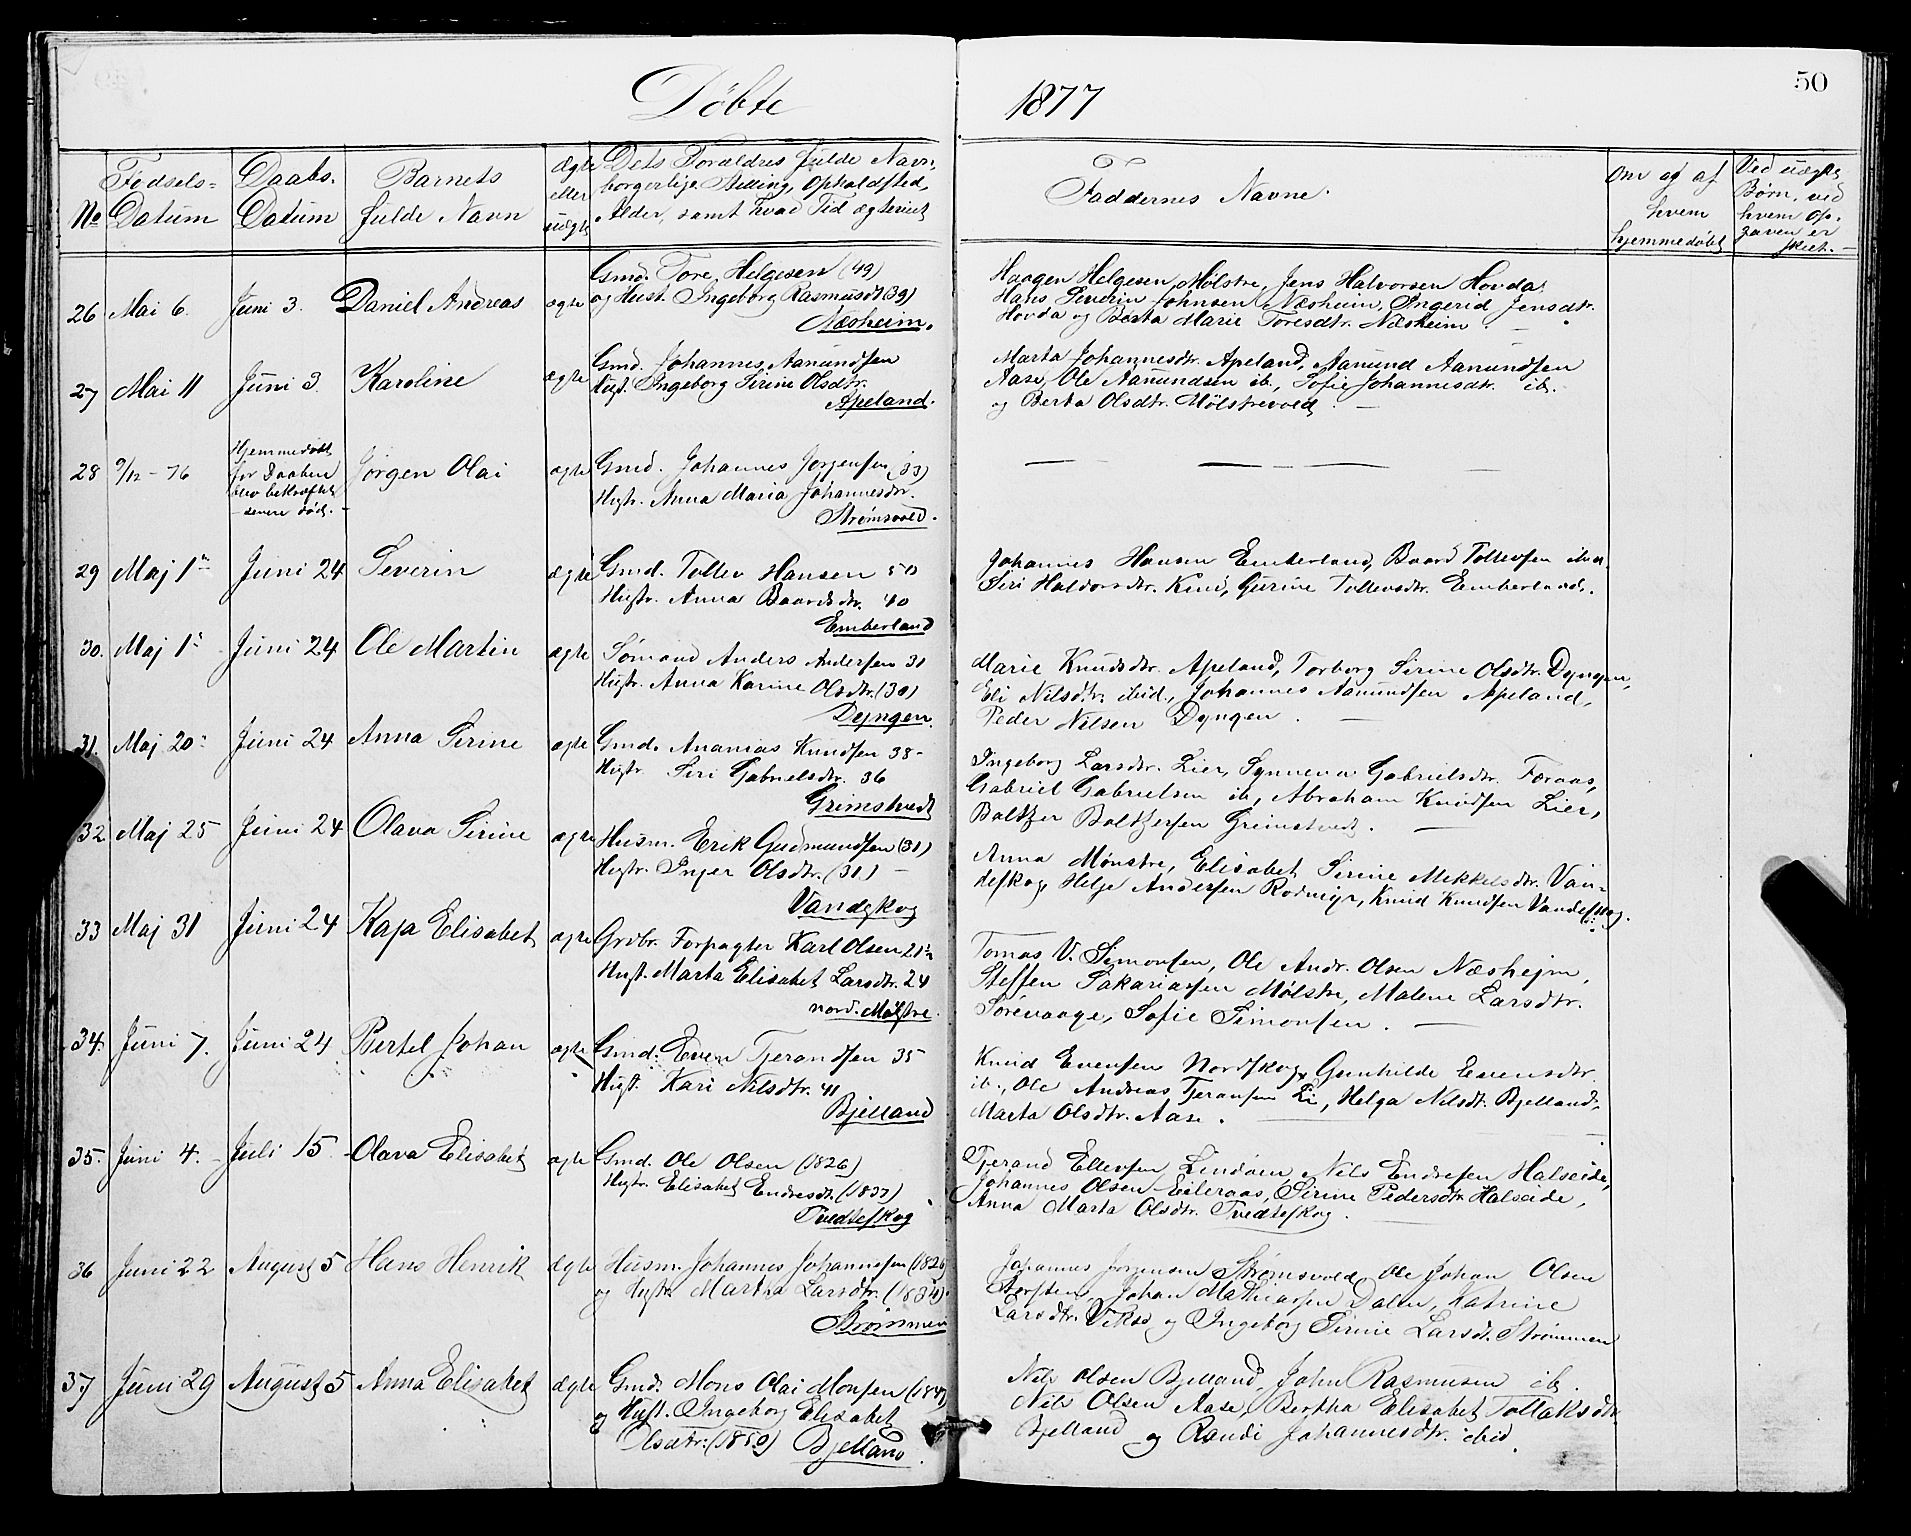 Døbte 1877
50
No
Fødsels-Datum
Daabs-Datum
Barnets fulde Navn
Ægte eller uægte
Dets Forældres fulde Navn, borgerlige Stilling, Opholdssted, Alder, samt hvad Tid ægteviet
Faddernes Navne.
Om og af hvem hjemmedøbt
Ved uægte Børn, ved hvem Opgaven er skeet.
26 Mai 6. Juni 3. Daniel Andreas ægte Gmd. Tore Helgesen (49)
og Hust. Ingeborg Rasmusdt (39)
Næsheim.
Haagen Helgesen Mølstre, Jens Halvorsen Hovda,
Hans Severin Johnsen Næsheim, Ingerid Jensdtr.
Hovda og Berta Marie Toresdtr. Næsheim
27 Mai 11 Juni 3. Karoline ægte Gmd. Johannes Aamundsen
Hust. Ingeborg Sirine Olsdtr.
Apeland.
Marta Johannesdtr. Apeland, Aamund Aamundsen
Aase, Ole Aamundsen ib., Sofie Johannesdtr. ib.
og Berta Olsdtr. Mølstrevold.
28 9/12 - 76 Hjemmedøbt
før Daaben
blev bekræftet
- denne død. -
Jørgen Olai ægte Gmd. Johannes Jørgensen (33)
Hustr. Anna Maria Johannesdtr.
Strømsvold.
29 Maj 1ste Juni 24 Severin ægte Gmd. Tollev Hansen 50
Hustr. Anna Baardsdtr. 40
Emberland
Johannes Hansen Emberland, Baard Tollevsen ibid.
Siri Haldorsdtr. Kini, Gurine Tollevsdtr. Emberland.
30. Maj 1 Juni 24 Ole Martin ægte Sømand Anders Andersen 31
Hustr. Anna Karine Olsdtr. (30)
Dyngen.
Marie Knudsdtr. Apeland, Torborg Sirine Olsdtr. Dyngen,
Eli Nilsdtr. ibid., Johannes Aamundsen Apeland,
Peder Nilsen Dyngen.
31. Maj 20 Juni 24 Anna Sirine ægte Gmd. Ananias Knudsen 38-
Hustr Siri Gabrielsdtr. 36
Grimstvedt
Ingeborg Larsdtr. Lier, Synneva Gabrielsdtr. Foraas,
Gabriel Gabrielsen ib., Abraham Knudsen Lier,
Baltzer Baltzersen Grimstvedt.
32 Maj 25 Juni 24 Olava Sirine ægte Husm. Erik Gudmundsen (31)
Hustr. Inger Olsdtr. (31)
Vandeskog
Anna Mønstre, Elisabet Sirine Mikkelsdtr. Van-
deskog, Helge Andersen Knud Knudsen Vandeskog.
33 Maj 31 Juni 24 Kaja Elisabet ægte Grdbr. Forpagter Karl Olsen 21½
Hust. Marta Elisabet Larsdtr. 24
nord. Mølstre.
Tomas V. Simonsen, Ole Andr. Olsen Næshejm,
Steffen Sakariasen Mølstre, Malene Larsdtr.
Sørevaage, Sofie Simonsen.
34. Juni 7. Juni 24 Bertel Johan ægte Gmd. Even Tjerandsen 35
Hust. Kari Nilsdtr. 41
Bjelland
Knud Evensen Nordskog, Gunhilde Evensdtr.
ib., Ole Andreas Tjeransen Li, Helga Nilsdt. Bjelland,
Marta Olsdtr. Aase.
35. Juni 4. Juli 15 Olava Elisabet ægte Gmd. Ole Olsen (1826)
Hustr. Elisabet Endresdt. (1837)
Tvedteskog
Tjerand Ellevsen Lindøen, Nils Endresen Halseide,
Johannes Olsen Eileraas, Sirine Pedersdtr. Halseide,
Anna Marta Olsdtr. Tvedteskog.
36 Juni 22 August 5 Hans Henrik ægte Husm. Johannes Johannesen (1826)
og Hustr. Martha Larsdtr. (1834).
Strømmen
Johannes Jørgensen Strømsvold, Ole Johan Olsen
Johan Mathiassen Dalen, Katrine
Larsdtr. Vikse og Ingeborg Sirine Larsdt. Strømmen
37 Juni 29 August 5 Anna Elisabet ægte Gmd. Mons Olai Monsen (1847)
og Hust. Ingeborg Elisabet
Olsdtr. (1850) Bjelland.
Nils Olsen Bjelland, John Rasmusen ib.
Nils Olsen Aase, Bertha Elisabet Tollaksdtr
Bjelland og Randi Johannesdtr. ibid.